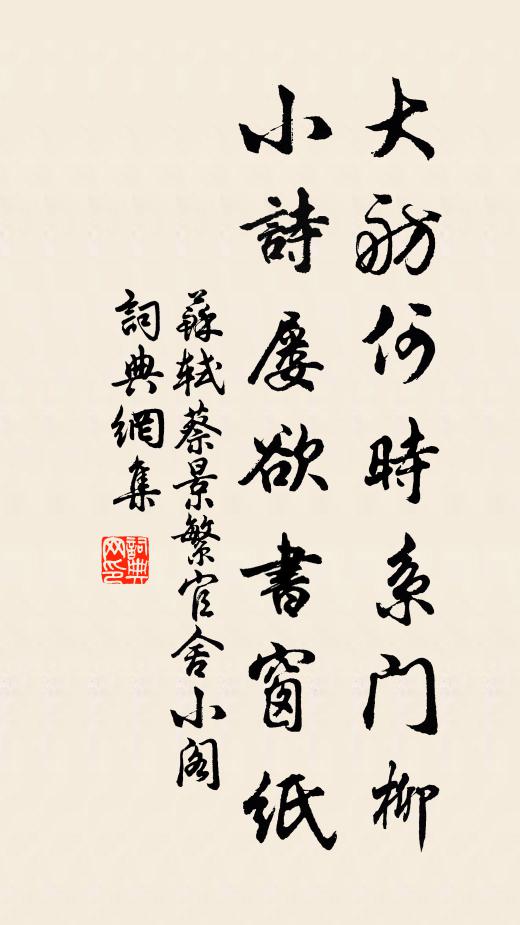 大舫何時系門柳
小詩屡欲書窗紙
蘇軾蔡景繁官舍小阁
詞典網集
詞典
网印